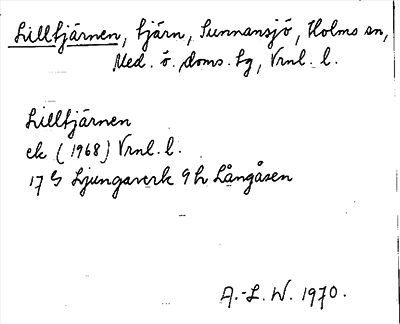 Lilltjärnen, tjärn, Sunnansjö, Holms sn,
Med. ö. doms. tg, Vrnl. l.
Lilltjärnen
ek (1968) Vrnl. l.
17 G Ljungaverk 9 h Långåsen
A.-L. W. 1970.